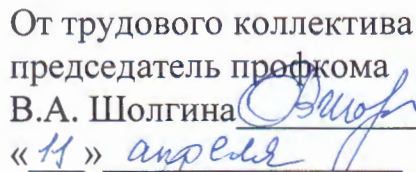 От трудового коллектива
председатель профкома
В.А. Шолгина
«11» апреля